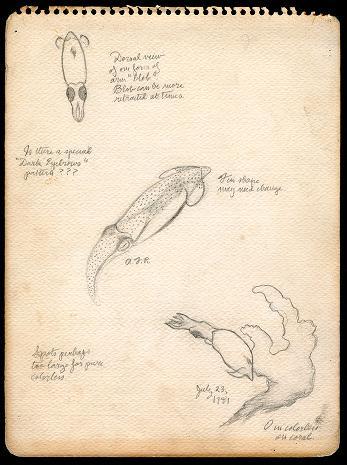 Dorsal view
of one form of
arm "blob"
Blob can be more
retracted at times
Is there a special
"Dark Eyebrows"
pattern ???
Fin shape
may need change.
Spots perhaps
too large for pure
colorless.
July 23,
on coral.